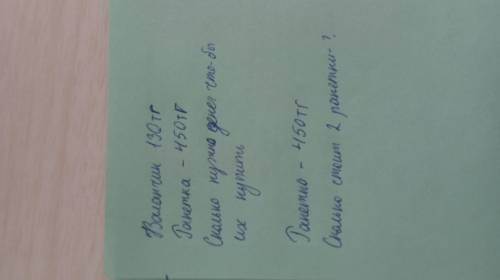 Валанчик 130тг
Ракетка - 450тг
Сколько нужно денег что-бы
их купить
Ракетка - 450тг
Сколько стоит 2 ракетки-?